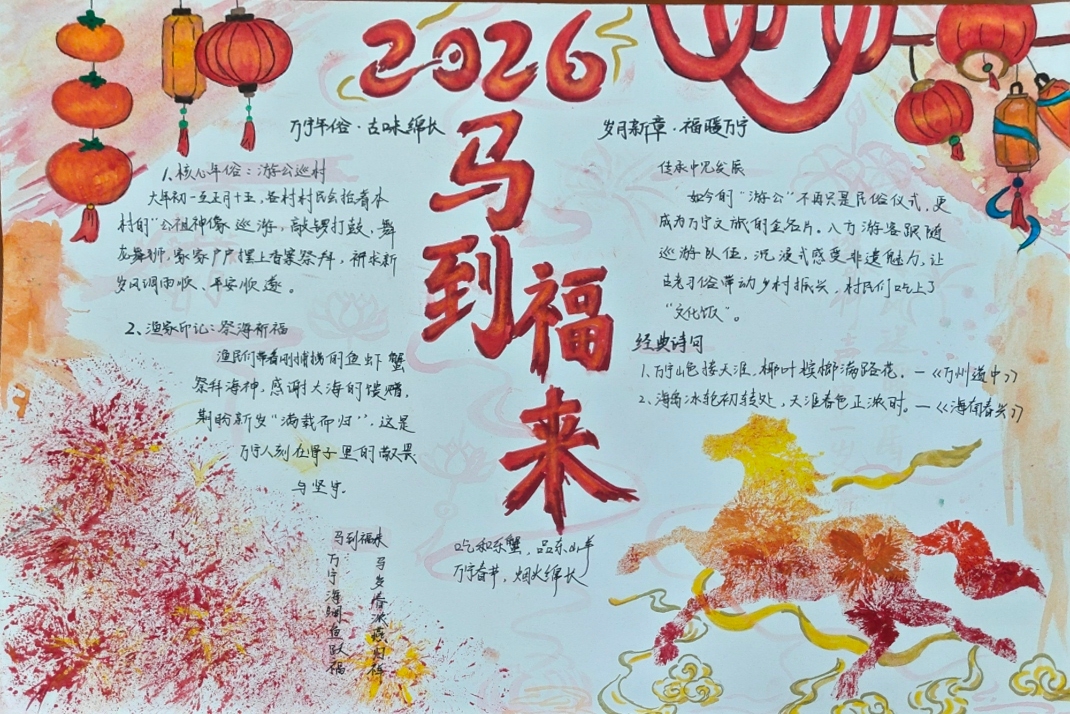 2026
马到福来
万宁年俗·古味绵长
1、核心年俗：游公巡村
大年初一至正月十五，各村村民会抬着本
村的“公祖神像”巡游，敲锣打鼓，舞
龙舞狮，家家户户摆上香案祭拜，祈求新
岁风调雨顺、平安顺遂。
2、渔家印记：祭海祈福
渔民们带着刚捕捞的鱼虾蟹
祭拜海神，感谢大海的馈赠，
期盼新岁“满载而归”，这是
万宁人刻在骨子里的敬畏
与坚守。
马到福来
万宁海阔鱼跃福
吃和乐蟹，品东山羊
万宁春节，烟火绵长
岁月新章·福暖万宁
传承中见发展
如今的“游公”不再只是民俗仪式，更
成为万宁文旅的金名片。八方游客跟随
巡游队伍，沉浸式感受非遗魅力，让
古老习俗带动乡村振兴，村民们吃上了
“文化饭”。
经典诗句
1、万宁山色接天涯，椰叶槟榔满路花。—《万州道中》
2、海角冰轮初转处，天涯春色正浓时。—《海南春兴》